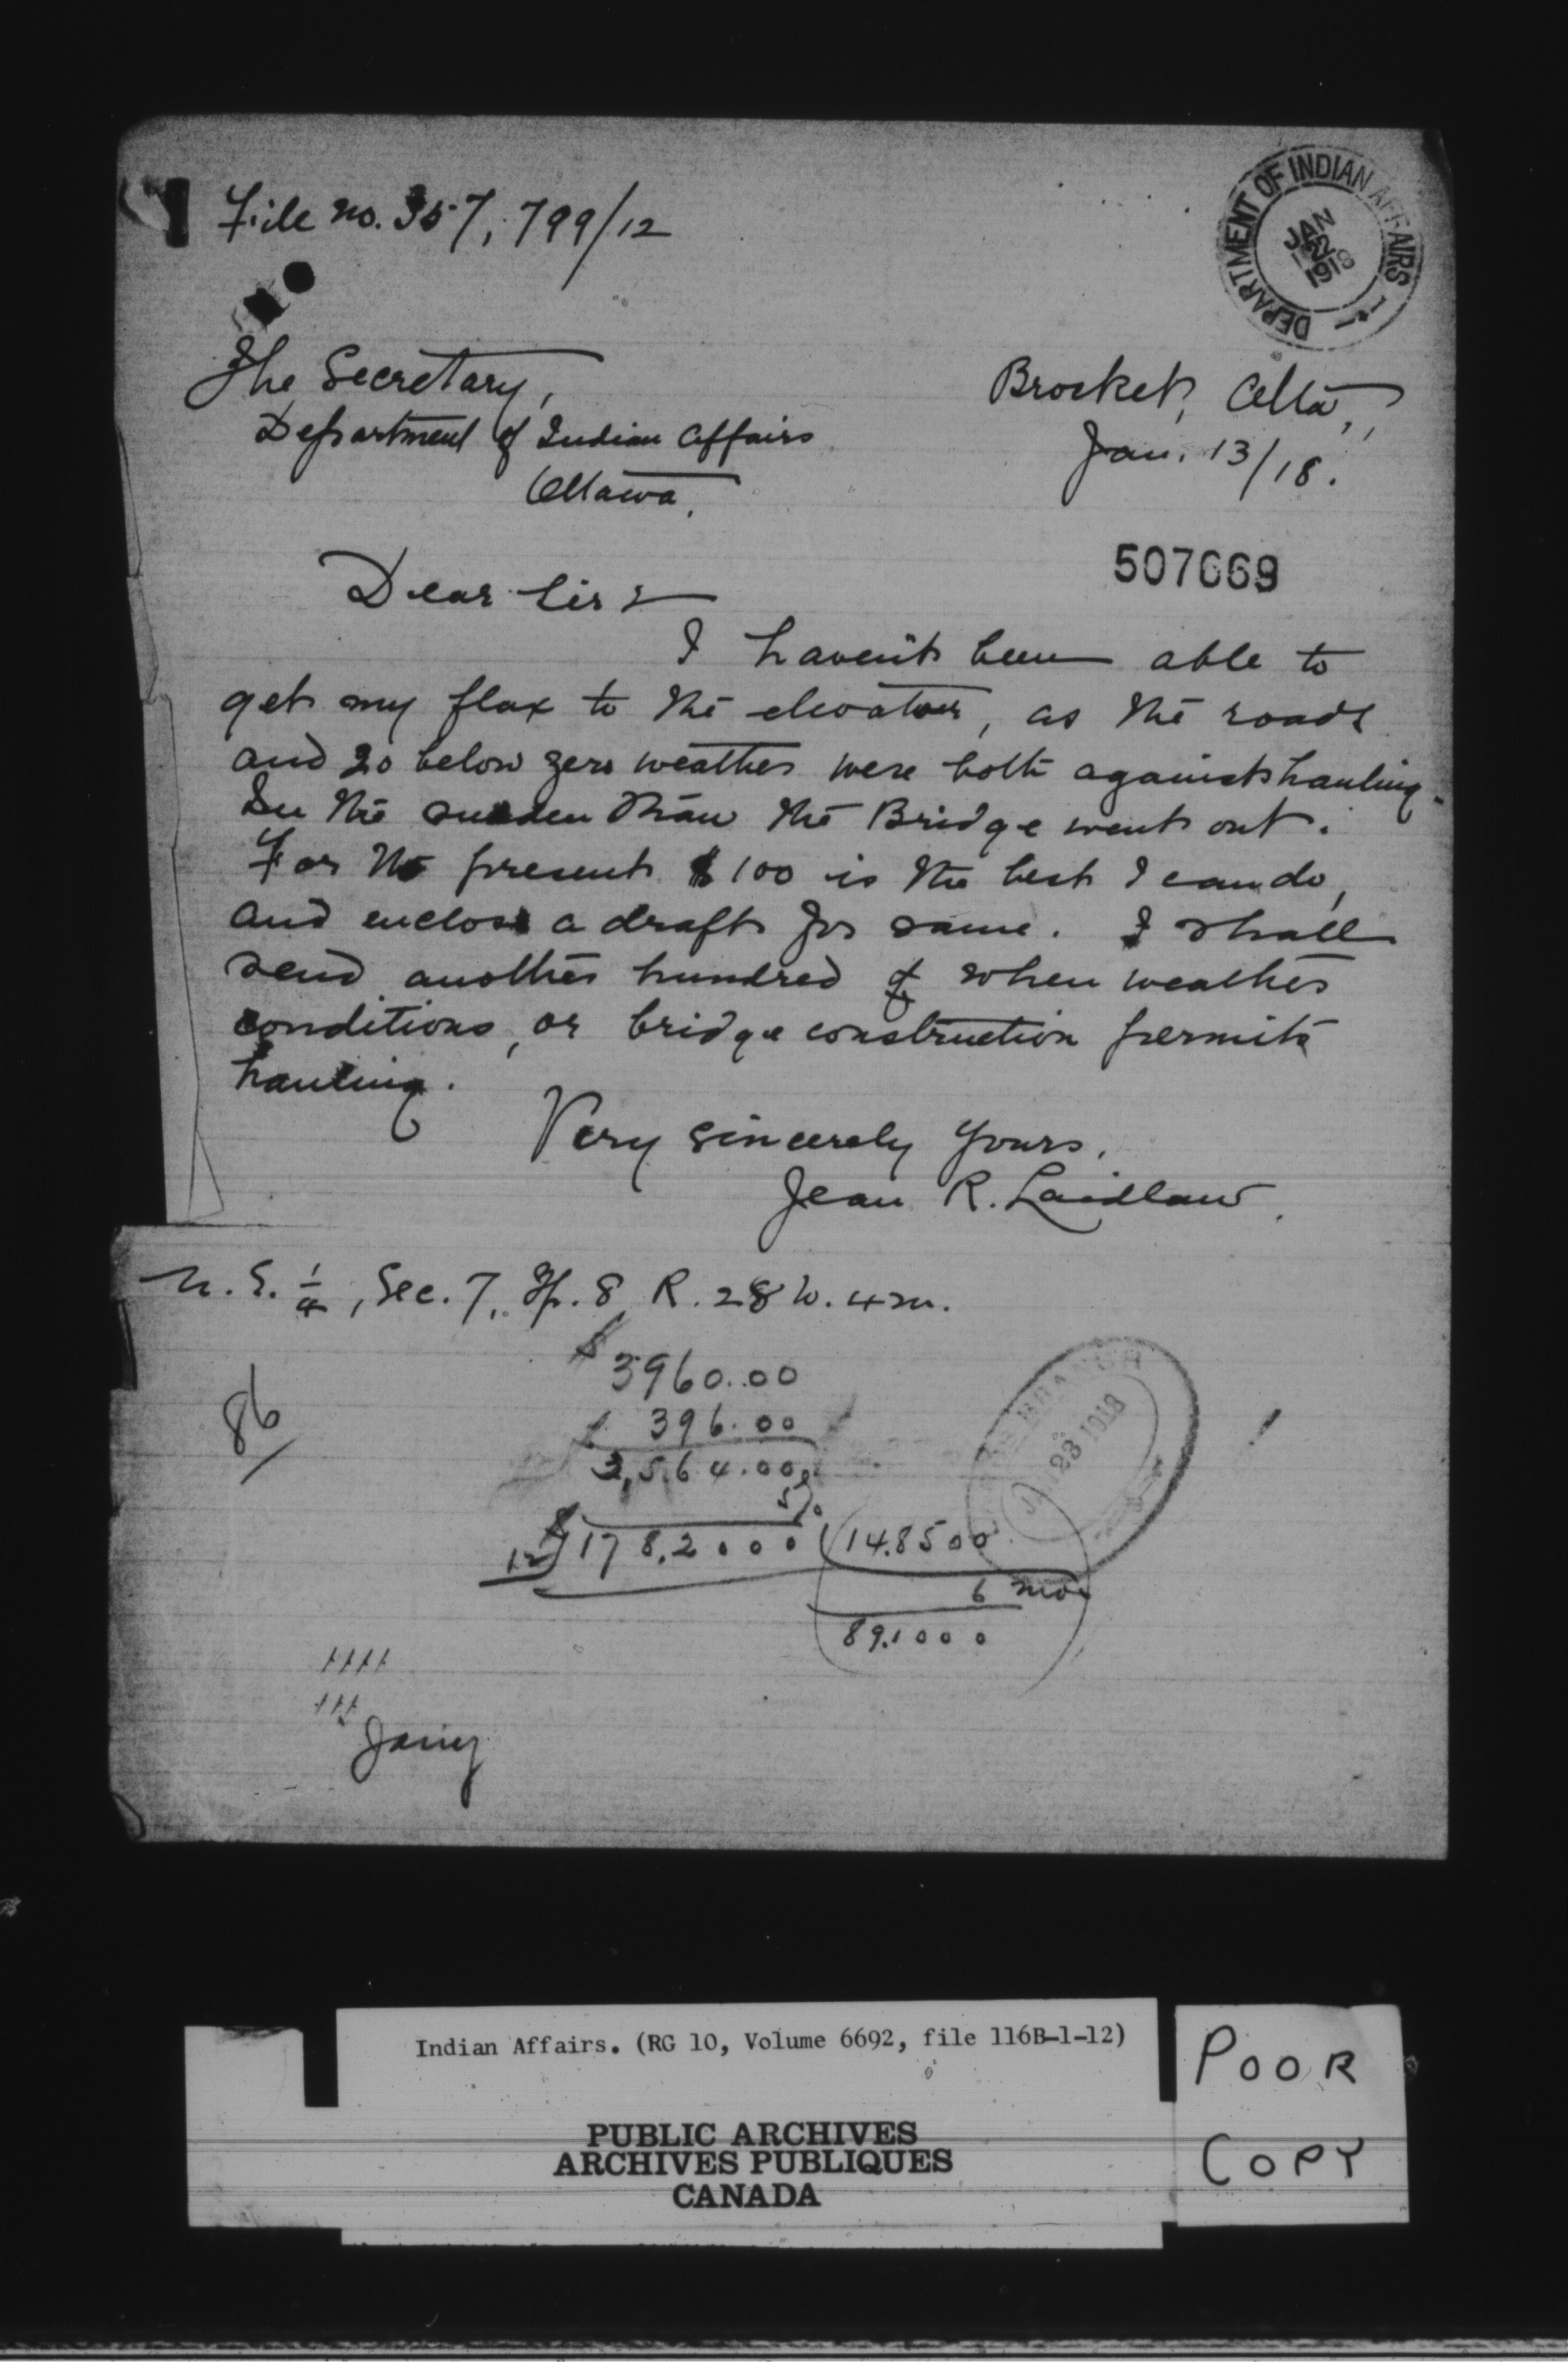 File no. 357,799/12
DEPARTMENT OF INDIAN AFFAIRS
JAN 22 1918
The Secretary,
Department of Indian Affairs
Ottawa.
Brocket, Alta.,
Jan. 13/18.
507669
Dear Sir:
I haven't been able to
get my flax to the elevator, as the roads
and 20 below zero weather were both against hauling.
In the sudden thaw the Bridge went out.
For the present $100 is the best I can do,
and enclose a draft for same. I shall
send another hundred when weather
conditions, or bridge construction permits
hauling.
Very sincerely yours,
Jean R. Laidlaw.
N.E. 1/4, Sec. 7, Tp. 8 R. 28 W. 4 M.
$
3960.00
396.00
3,564.00
5%
86
12) $178.2000 (14.8500
6 mos
89.1000
BRANCH
23 1918
Indian Affairs. (RG 10, Volume 6692, file 116B-1-12)
PUBLIC ARCHIVES
ARCHIVES PUBLIQUES
CANADA
POOR
COPY